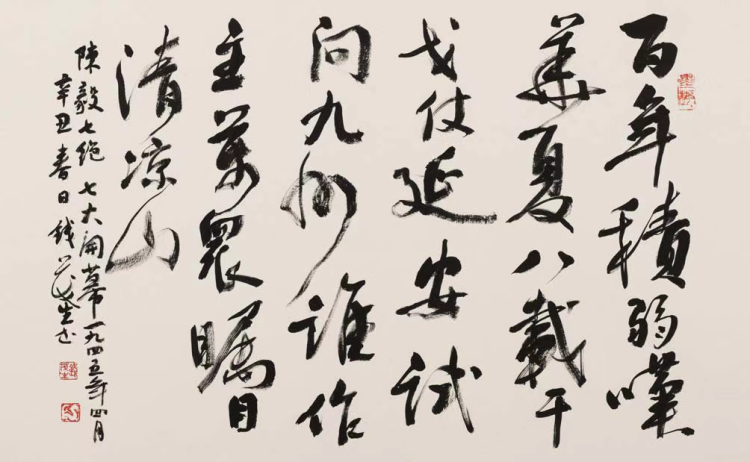 百年積弱嘆
華夏八載干
戈仗延安試
問九州誰作
主萬眾矚目
清凉山
陳毅七絕七大開幕一九四五年四月
辛丑春日錢茂生书